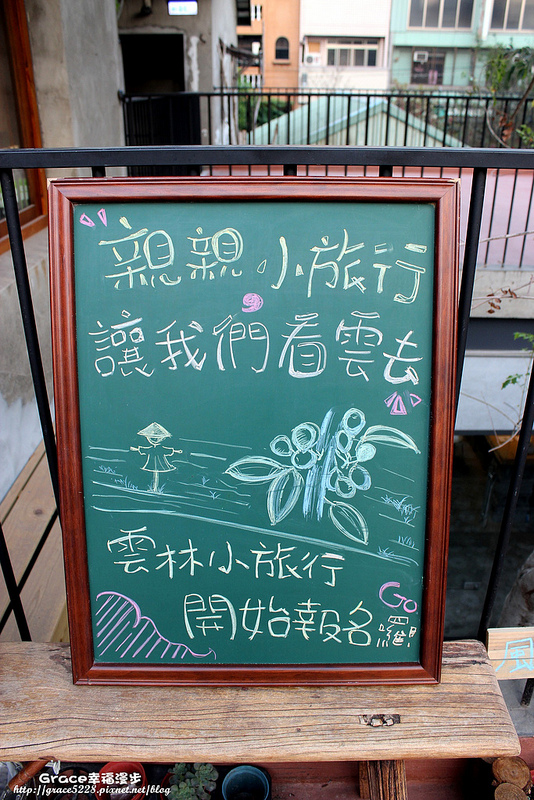 親親小旅行,
讓我們看雲去
雲林小旅行
Go
開始報名囉
風
Grace幸福漫步
http://grace5228.pixnet.net/blog